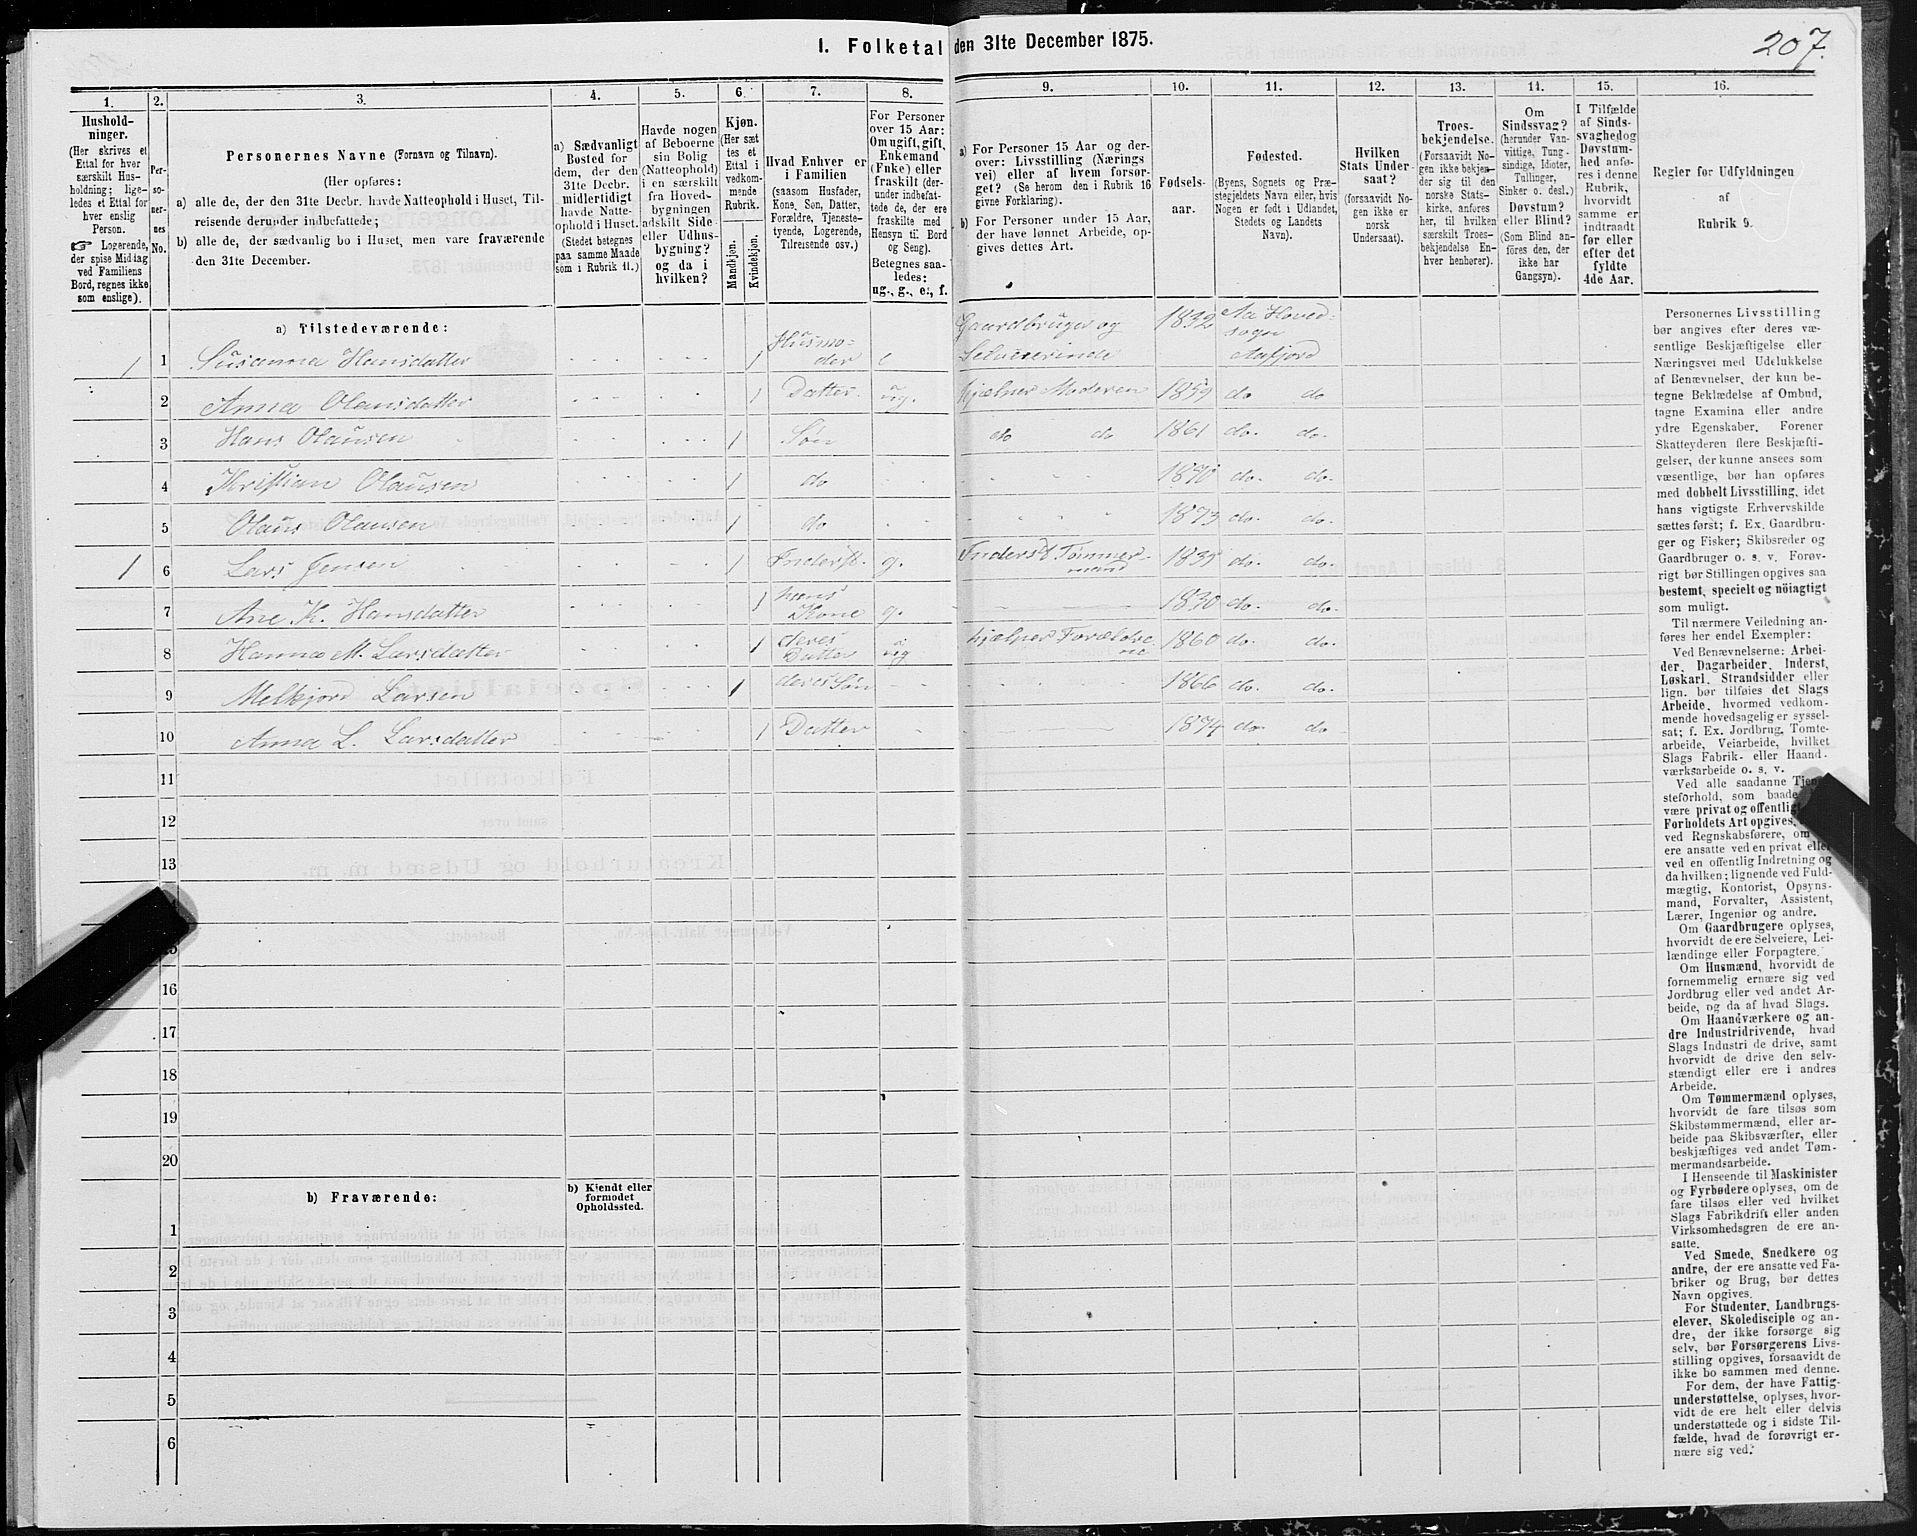 I. Folketal den 31te December 1875.
207.
1. 2. 3. 4. 5. 6. 7. 8. 9. 10. 11. 12. 13. 14. 15. 16.
Hushold-
ninger.
(Her skrives et
Ettal for hver
særskilt Hus-
holdning; lige-
ledes et Ettal for
hver enslig
Person.
☞ Logerende,
der spise Middag
ved Familiens
Bord, regnes ikke
som enslige).
Per-
so-
ner-
nes
No.
Personernes Navne (Fornavn og Tilnavn).
(Her opføres:
a) alle de, der den 31te Decbr. havde Natteophold i Huset, Til-
reisende derunder indbefattede;
b) alle de, der sædvanlig bo i Huset, men vare fraværende
den 31te December.
a) Sædvanligt
Bosted for
dem, der den
31te Decbr.
midlertidigt
havde Natte-
ophold i Huset.
(Stedet betegnes
paa samme Maade
som i Rubrik 11.)
Havde nogen
af Beboerne
sin Bolig
(Natteophold)
i en særskilt
fra Hoved-
bygningen
adskilt Side
eller Udhus-
bygning?
og da i
hvilken?
Kjøn.
(Her sæt
tes et
Ettal i
vedkom-
mende
Rubrik.
Mandkjøn.
Kvindekjøn.
Hvad Enhver er
i Familien
(saasom Husfader,
Kone, Søn, Datter,
Forældre, Tjeneste-
tyende, Logerende,
Tilreisende osv.)
For Personer
over 15 Aar:
Om ugift, gift,
Enkemand
(Enke) eller
fraskilt (der-
under indbefat-
tede de, der ere
fraskilte med
Hensyn til Bord
og Seng).
Betegnes saa-
ledes:
ug., g., e., f.
a) For Personer 15 Aar og der-
over: Livsstilling (Nærings
vei) eller af hvem forsør-
get? (Se herom den i Rubrik 16
givne Forklaring).
b) For Personer under 15 Aar,
der have lønnet Arbeide, op-
gives dettes Art.
Fødsels-
aar.
Fødested.
(Byens, Sognets og Præ-
stegjeldets Navn eller, hvis
Nogen er født i Udlandet,
Stedets og Landets
Navn).
Hvilken
Stats Under-
saat?
(forsaavidt No-
gen ikke er
norsk
Undersaat).
Troes-
bekjendelse.
(Forsaavidt No-
gen ikke bekjen-
der sig til den
norske Stats-
kirke, anføres
her, til hvilken
særskilt Troes-
bekjendelse En-
hver henhører).
Om
Sindssvag?
(herunder Van-
vittige, Tung-
sindige, Idioter,
Tullinger,
Sinker o. desl.)
Døvstum?
eller Blind?
(Som Blind an-
føres den, der
ikke har
Gangsyn).
I Tilfælde
af Sinds-
svaghed og
Døvstum-
hed anfø-
res i denne
Rubrik,
hvorvidt
samme er
indtraadt
før eller
efter det
fyldte
4de Aar.
Regler for Udfyldningen
af
Rubrik 9.
a) Tilstedeværende:
1 1 Susanna Hansdatter 1 Husmo-
der e Gaardbruger og
Selveierinde 1832 Aa Hoved-
sogn
Aafjord
2 Anna Olausdatter 1 Datter ug. hjælper Moderen 1859 do do
3 Hans Olausen 1 Søn do do 1861 do. do.
4 Kristian Olausen 1 do 1870 do. do.
5 Olaus Olausen 1 do 1873 do. do.
1 6 Lars Jensen 1 Inderst. g. Inderst Tømmer-
mand 1835 do. do.
7 Ane K. Hansdatter 1 hans
Kone g. 1830 do. do.
8 Hanna M. Larsdatter 1 deres
Datter ug hjælper Forældre
ne 1860 do. do.
9 Melkjord Larsen 1 deres Søn 1866 do. do.
10 Anna L. Larsdatter 1 Datter 1874 do. do.
11
12
13
15
16
17
18
19
20
b) Fraværende:
b) Kjendt eller
formodet
Opholdssted.
1
2
3
4
5
6
Personernes Livsstilling
bør angives efter deres væ-
sentlige Beskjæftigelse eller
Næringsvei med Udelukkelse
af Benævnelser, der kun be-
tegne Beklædelse af Ombud,
tagne Examina eller andre
ydre Egenskaber. Forener
Skatteyderen flere Beskjæfti-
gelser, der kunne ansees som
væsentlige, bør han opføres
med dobbelt Livsstilling, idet
hans vigtigste Erhvervskilde
sættes først; f. Ex. Gaardbru-
ger og Fisker; Skibsreder og
Gaardbruger o. s. v. Forøv-
rigt bør Stillingen opgives saa
bestemt, specielt og nöiagtigt
som muligt.
Til nærmere Veiledning an-
føres her endel Exempler:
Ved Benævnelserne: Arbei-
der, Dagarbeider, Inderst,
Løskarl, Strandsidder eller
lign. bør tilføies det Slags
Arbeide, hvormed vedkom-
mende hovedsagelig er syssel-
sat; f. Ex. Jordbrug, Tomte-
arbeide, Veiarbeide, hvilket
Slags Fabrik- eller Haand-
værksarbeide o. s. v.
Ved alle saadanne Tjene-
steforhold, som baade
være privat og offentligt
Forholdets Art opgives,
ved Regnskabsførere, om
ere ansatte ved en privat eller
ved en offentlig Indretning og
da hvilken; lignende ved Fuld-
mægtig, Kontorist, Opsyns-
mand, Forvalter, Assistent,
Lærer, Ingeniør og andre.
Om Gaardbrugere oplyses,
hvorvidt de ere Selveiere, Lei-
lændinge eller Forpagtere.
Om Husmænd, hvorvidt de
fornemmelig ernære sig ved
Jordbrug eller ved andet Ar-
beide, og da af hvad Slags.
Om Haandværkere og an-
dre Industridrivende, hvad
Slags Industri de drive, samt
hvorvidt de drive den selv-
stændigt eller ere i andres
Arbeide.
Om Tømmermænd oplyses,
hvorvidt de fare tilsøs som
Skibstømmermænd, eller ar-
beide paa Skibsværfter, eller
beskjæftiges ved andet Tøm-
mermandsarbeide.
I Henseende til Maskinister
og Fyrbødere oplyses, om de
fare tilsøs eller ved hvilket
Slags Fabrikdrift eller anden
Virksomhedsgren de ere an-
satte.
Ved Smede, Snedkere og
andre, der ere ansatte ved Fa-
briker og Brug, bør dettes
Navn opgives.
For Studenter, Landbrugs-
elever, Skoledisciple og an-
dre, der ikke forsørge sig
selv, bør Forsørgerens Livs-
stilling opgives, forsaavidt de
ikke bo sammen med denne.
For dem, der have Fattig-
understøttelse, oplyses, hvor-
vidt de ere helt eller delvis
understøttede og i sidste Til-
fælde, hvad de forøvrigt er-
nære sig ved.